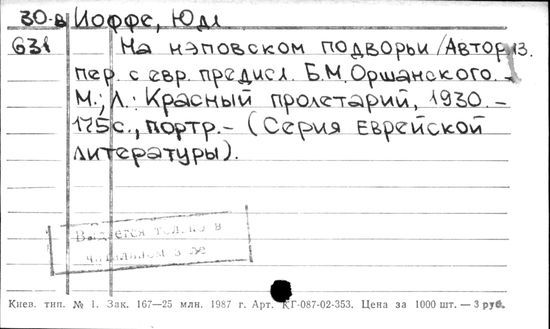 30-в Иоффе, Юдл
G31 На нэповском подворьи/Авториз.
пер. с евр. предисл. Б.М.Оршанского.-
М.; Л.: Красный пролетарий, 1930.-
175с., портр.- (Серия Еврейской
литературы).
Выдается только в
читальном зале
Киев. тип. № 1. Зак. 167—25 млн. 1987 г. Арт. КГ-087-02-353. Цена за 1000 шт. — 3 руб.